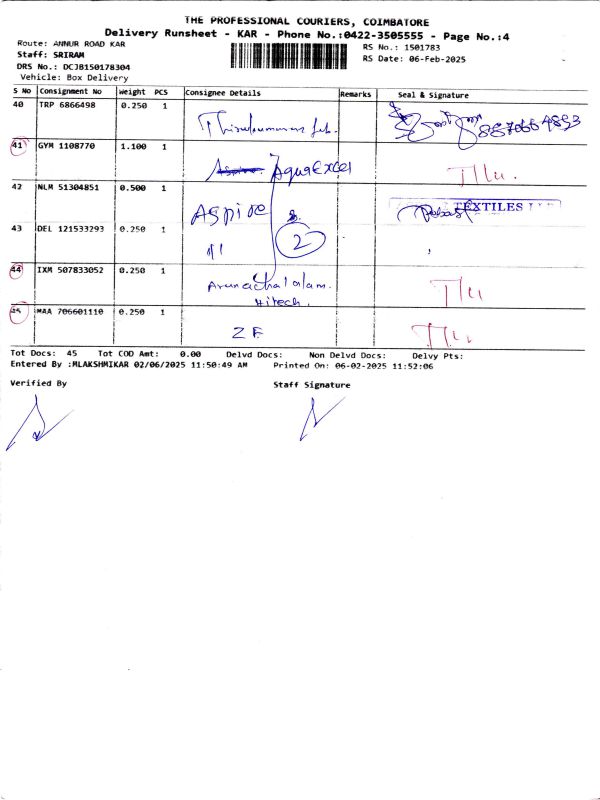 THE PROFESSIONAL COURIERS, COIMBATORE
Delivery Runsheet - KAR - Phone No.:0422-3505555 - Page No.:4
Route: ANNUR ROAD KAR
RS No.: 1501783
Staff: SRIRAM
RS Date: 06-Feb-2025
DRS No.: DCJB150178304
Vehicle: Box Delivery
S No Consignment No Weight PCS Consignee Details Remarks Seal & Signature
40 TRP 6866498 0.250 1
41 GYM 1108770 1.100 1 AquaExcel
42 NLM 51304851 0.500 1 ASPIRE TEXTILES
43 DEL 121533293 0.250 1 11 2
44 IXM 507833052 0.250 1 Arunachalalam. Hitech.
45 MAA 706601110 0.250 1 Z F
Tot Docs: 45 Tot COD Amt: 0.00 Delvd Docs: Non Delvd Docs: Delvy Pts:
Entered By :MLAKSHMIKAR 02/06/2025 11:50:49 AM Printed On: 06-02-2025 11:52:06
Verified By Staff Signature